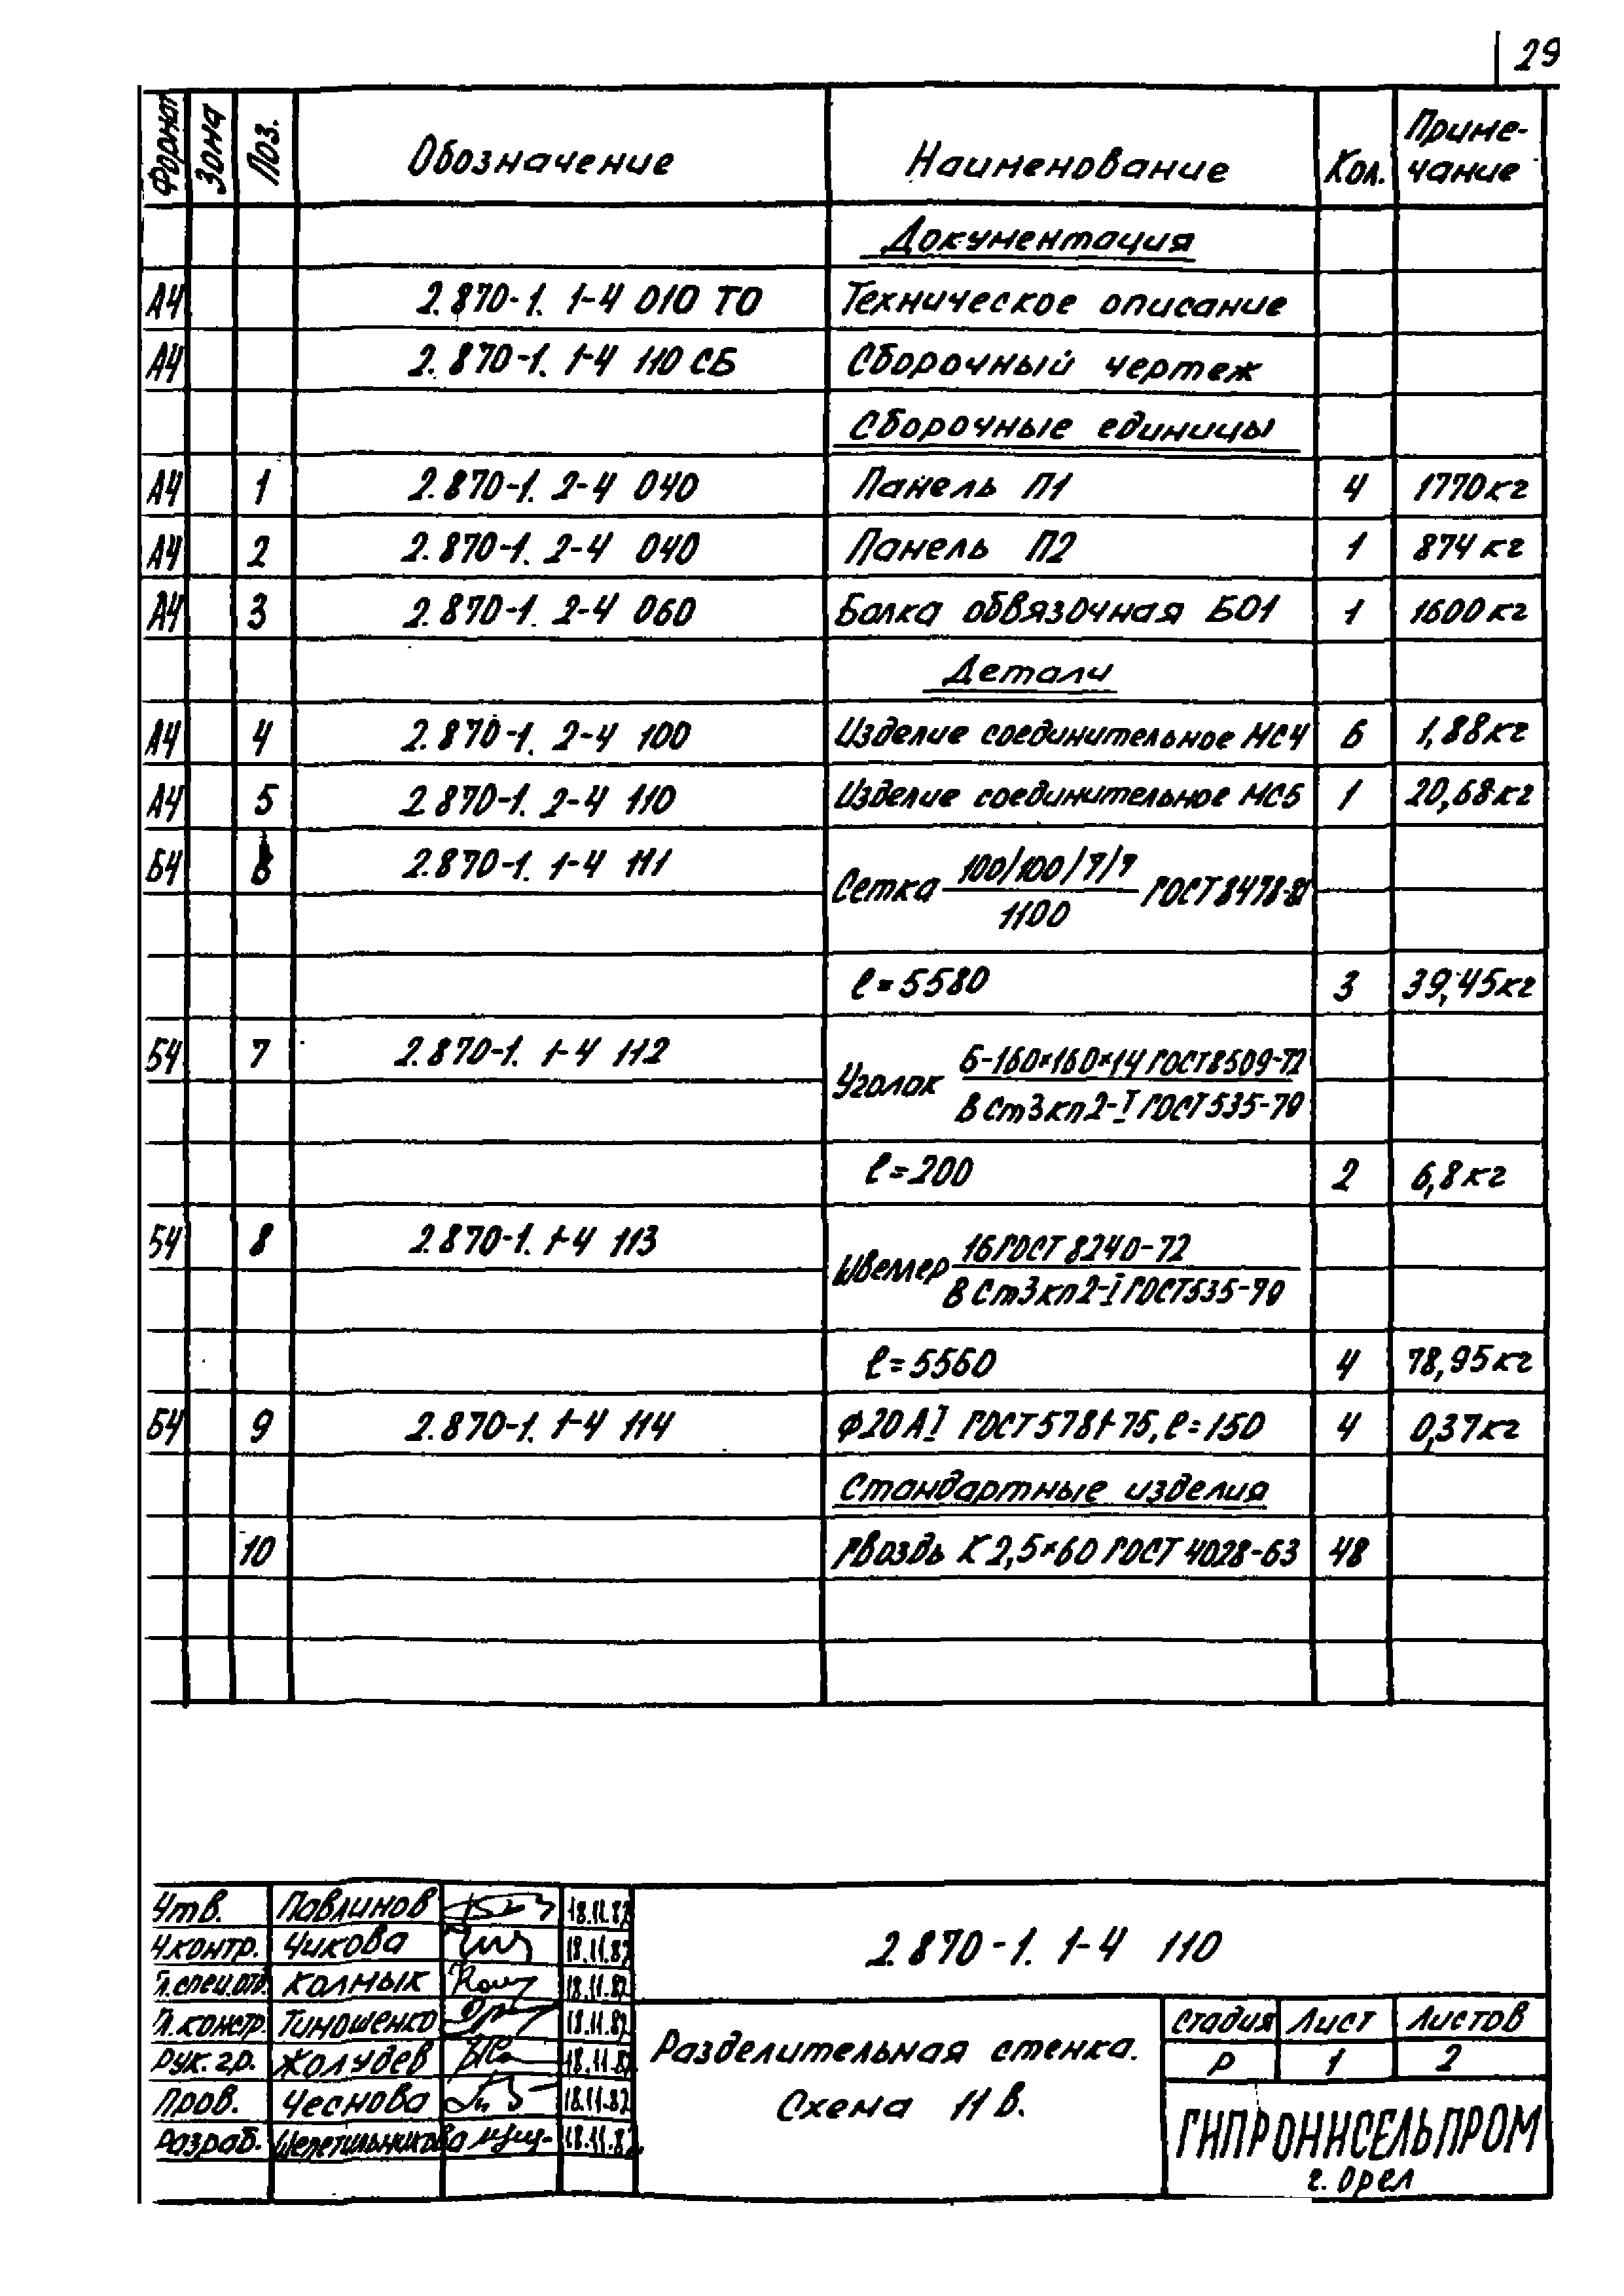 29
Формат Зона Поз. Обозначение Наименование Кол. Приме-
чание
Документация
А4 2.870-1. 1-4 010 ТО Техническое описание
А4 2.870-1. 1-4 110 СБ Сборочный чертеж
Сборочные единицы
А4 1 2.870-1. 2-4 040 Панель П1 4 1770кг
А4 2 2.870-1. 2-4 040 Панель П2 1 874кг
А4 3 2.870-1. 2-4 060 Балка обвязочная БО1 1 1600кг
Детали
А4 4 2.870-1. 2-4 100 Изделие соединительное МС4 6 1,88кг
А4 5 2 870-1. 2-4 110 Изделие соединительное МС5 1 20,68кг
Б4 6 2.870-1. 1-4 111 Сетка 100/100/7/7 ГОСТ 8478-81
1100
ℓ=5580 3 39,45кг
Б4 7 2.870-1. 1-4 112 Уголок Б-160×160×14 ГОСТ 8509-72
ВСт3кп2-I ГОСТ 535-79
ℓ=200 2 6,8кг
Б4 8 2.870-1. 1-4 113 Швеллер 16 ГОСТ 8240-72
ВСт3кп2-I ГОСТ 535-79
ℓ=5560 4 78,95кг
Б4 9 2.870-1. 1-4 114 ф20АI ГОСТ 5781-75, ℓ=150 4 0,37кг
Стандартные изделия
10 Гвоздь К 2,5×60 ГОСТ 4028-63 48
Утв. Павлинов 18.11.82
Н.контр. Чикова 18.11.82
Гл.спец.отд. Колмык 18.11.82
Гл.констр. Тимошенко 18.11.82
Рук. гр. Жолудев 18.11.82
Пров. Чеснова 18.11.82
Разраб. Шепетильникова 18.11.82
2.870-1. 1-4 110
Разделительная стенка.
Схема 11В.
Стадия Лист Листов
Р 1 2
ГИПРОНИСЕЛЬПРОМ
г. Орел